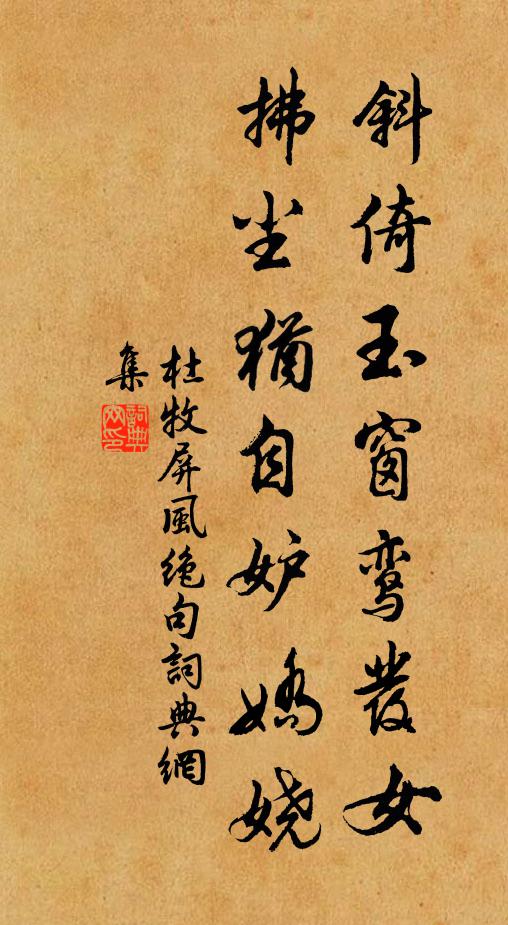 斜倚玉窗鸾發女
拂尘猶自妒嬌娆
杜牧屏風絶句詞典網
集
詞典網印